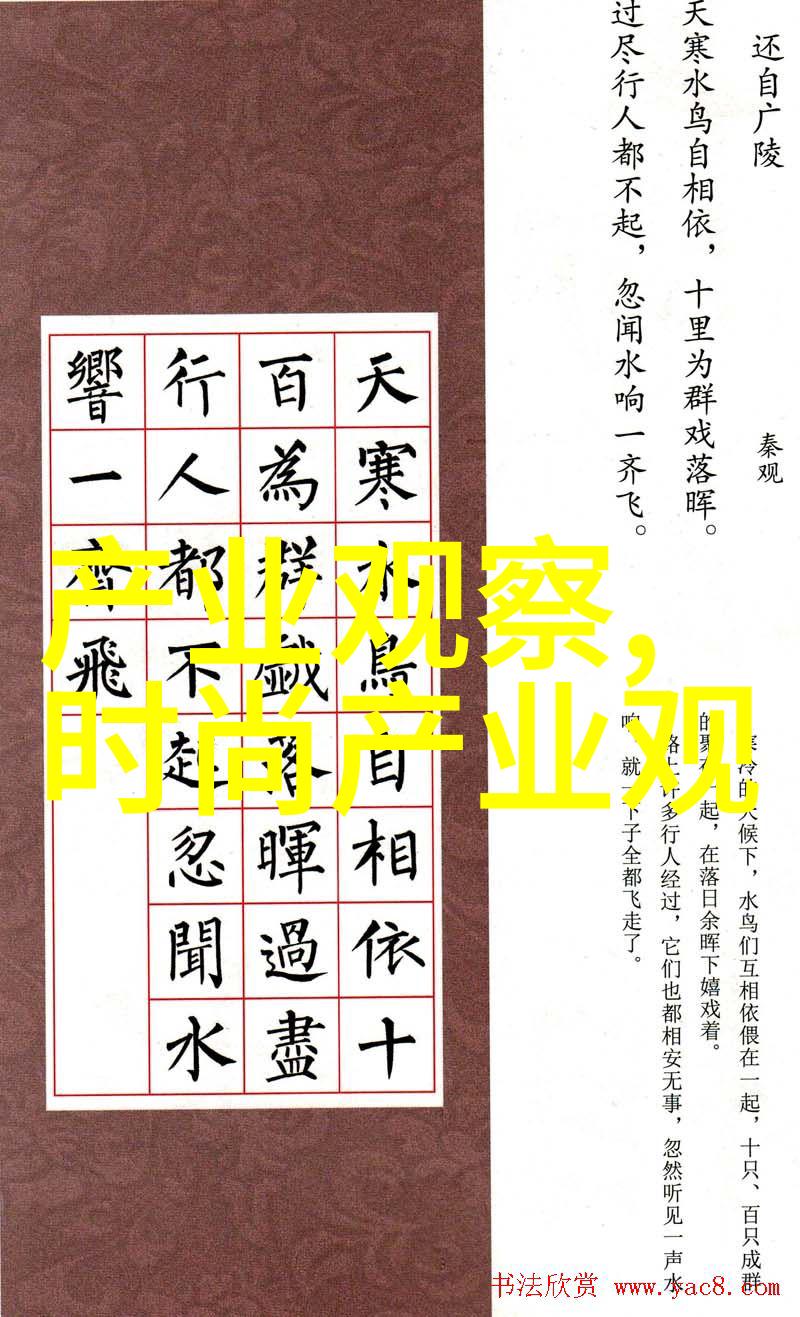 还自广陵
秦观
天寒水鸟自相依，十里为群戏落晖。
过尽行人都不起，忽闻水响一齐飞。
寒冷的天候下，水鸟们互相依偎在一起，十只、百只成群
的聚在一起，在落日余晖下嬉戏着。
路上许多行人经过，它们也都相安无事，忽然听见一声水
响，就一下子全都飞走了。
天寒水鳥自相依十
百為群戲落暉過盡
行人都不起忽聞水
響一齊飛
产业观察,
时尚产业观
书法欣赏 www.yac8.com